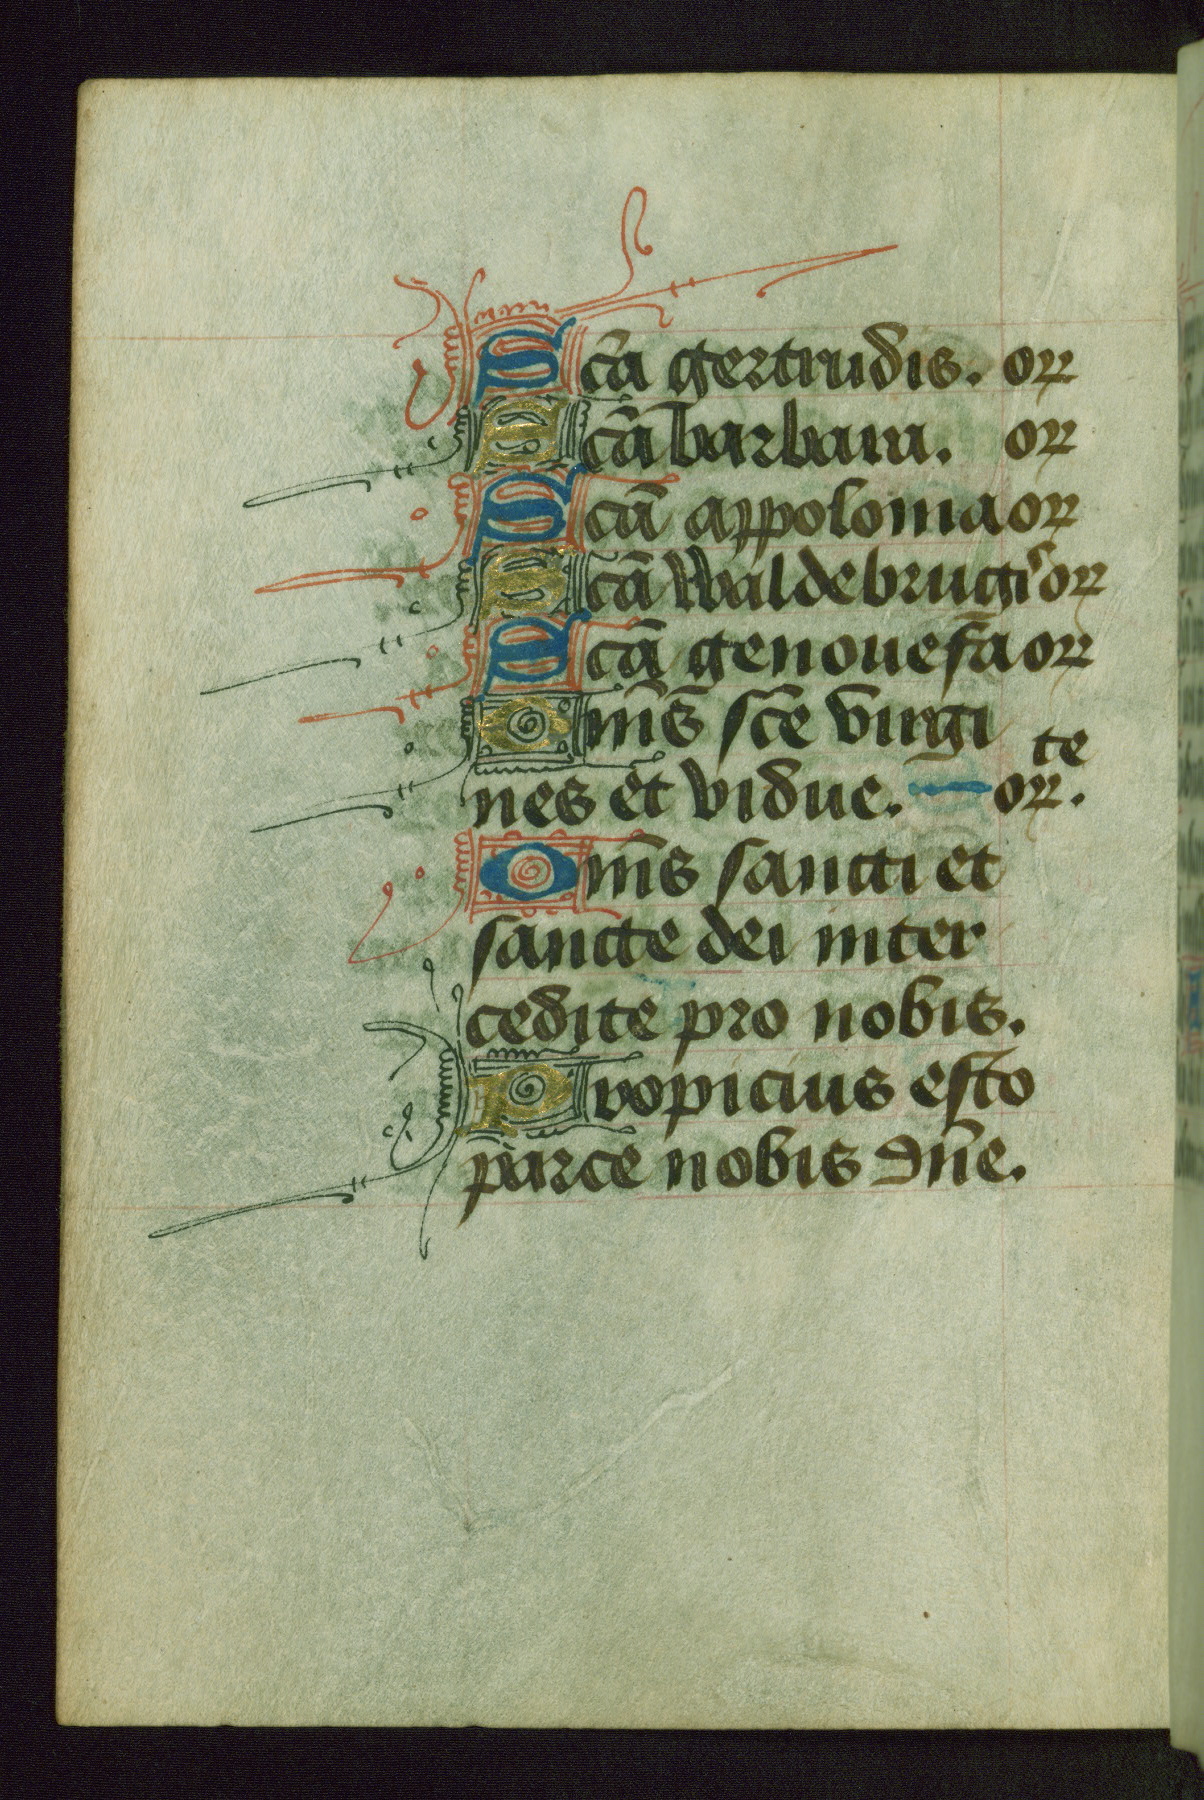 Sca̅ gertrudis. or
Sca̅ barbara. or
Sca̅ appolonia or
Sca̅ Waldebrugis or
Sca̅ genouefa or
Om̅s sc̅e virgi
nes et vidue. or. te
Om̅s sancti et
sancte dei inter
cedite pro nobis.
Propicius esto
parce nobis dn̅e.